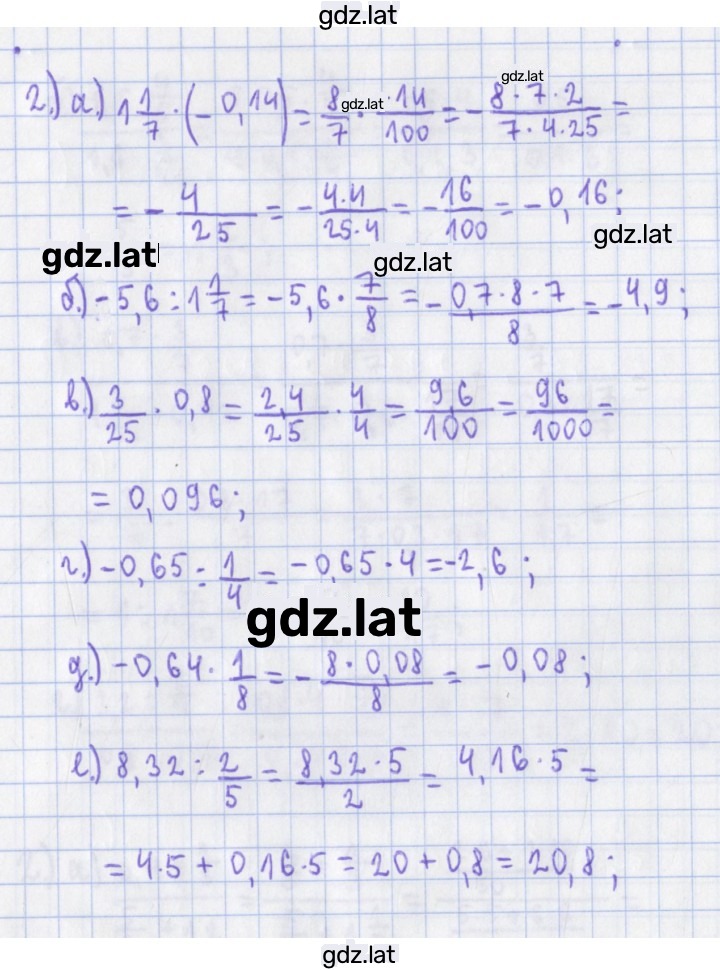 gdz.lat
gdz.lat
2.) а.) 1 1/7 · (- 0,14) = 8/7 · 14/100 = - 8·7·2/7·4·25 =
gdz.lat
= - 4/25 = - 4·4/25·4 = - 16/100 = - 0,16;
gdz.lat
gdz.lat
gdz.lat
б.) - 5,6 : 1 1/7 = - 5,6 · 7/8 = - 0,7·8·7/8 = - 4,9;
в.) 3/25 · 0,8 = 2,4/25 · 4/4 = 9,6/100 = 96/1000 =
= 0,096;
г.) - 0,65 : 1/4 = - 0,65 · 4 = -2,6;
gdz.lat
д.) - 0,64 · 1/8 = - 8·0,08/8 = - 0,08;
е.) 8,32 : 2/5 = 8,32·5/2 = 4,16·5 =
= 4·5 + 0,16·5 = 20 + 0,8 = 20,8;
gdz.lat